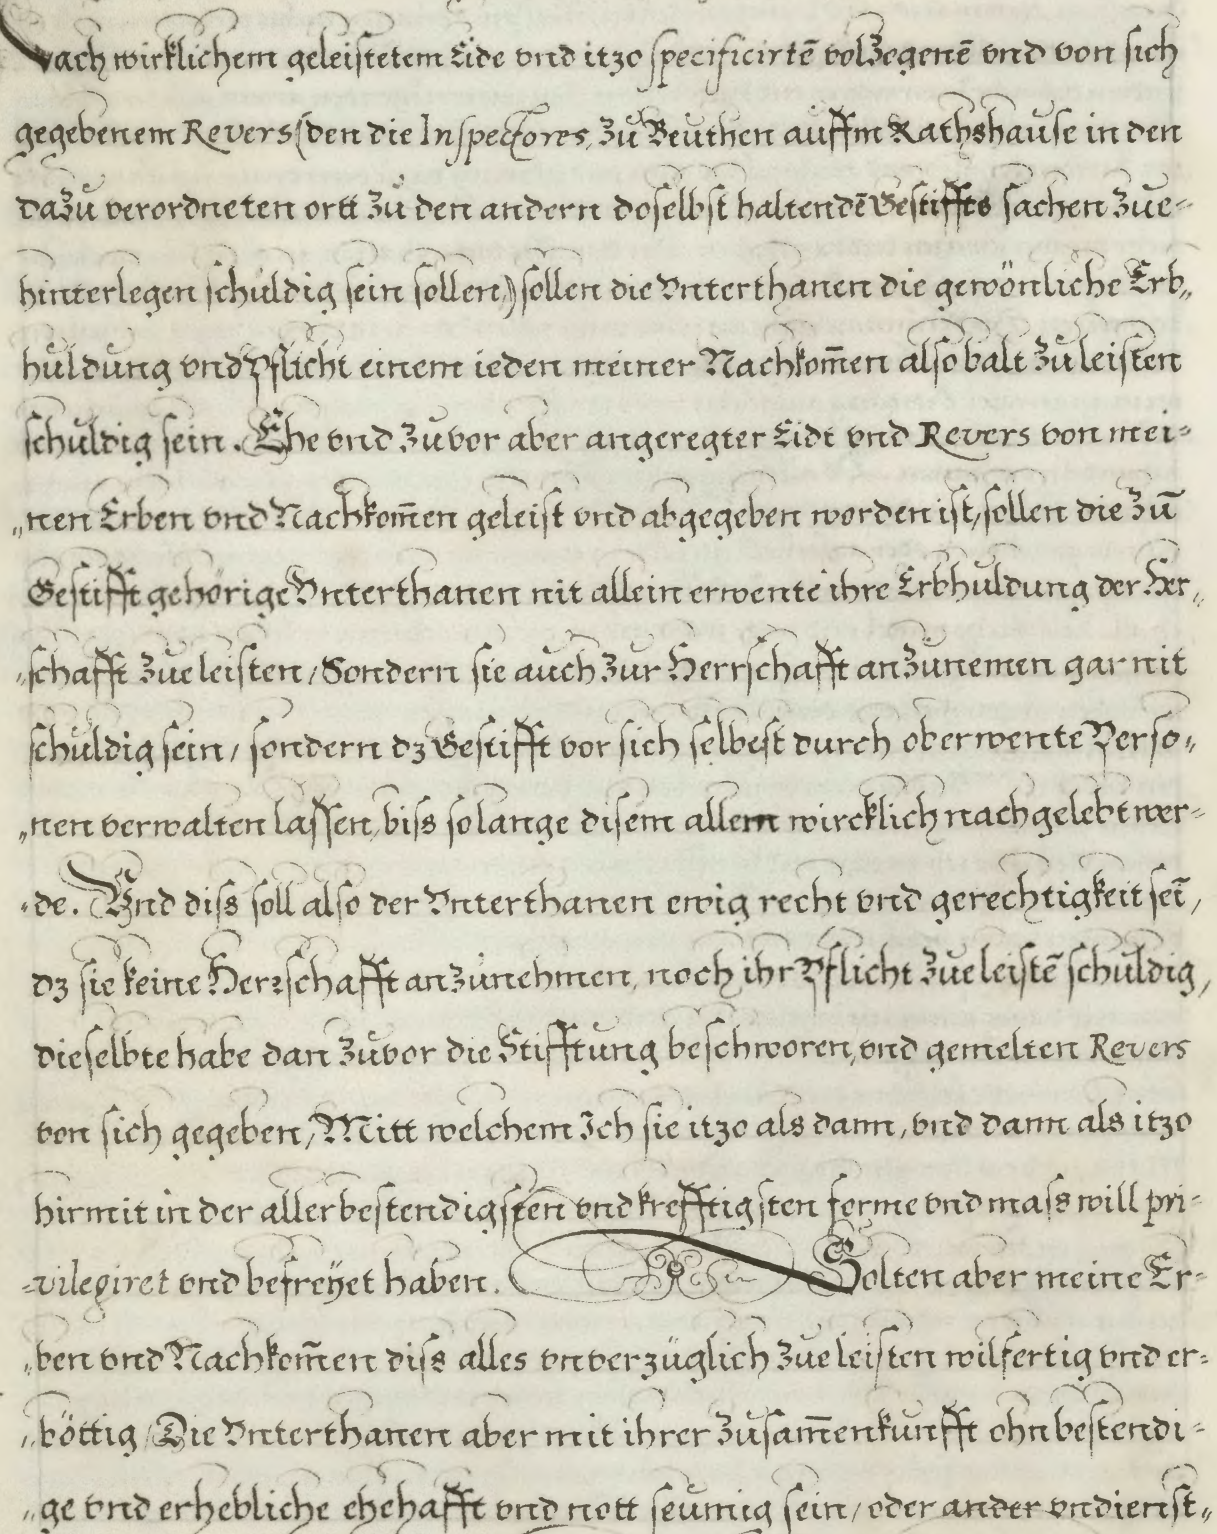 Nach wirklichem geleistetem Eide vnd itzo specificirtē volzogenē vnd von sich
gegebenem Revers (den die Inspectores, zu Beuthen auffm Rathshause in den
dazu verordneten ortt zu den andern doselbst haltendē Gestiffts sachen zue-
hinterlegen schuldig sein sollen,) sollen die Vnterthanen die gewönliche Erb„
huldung vnd Pflicht einem ieden meiner Nachkom̄en alsobalt zu leisten
schuldig sein. Ehe vnd zuvor aber angeregter Eidt vnd Revers von mei-
„nen Erben vnd Nachkom̄en geleist vnd abgegeben worden ist, sollen die zū
Gestifft gehörige Vnterthanen nit allein erwente ihre Erbhuldung der Her„
-schafft zue leisten / Sondern sie auch zur Herrschafft anzunemen gar nit
schuldig sein / sondern dz Gestifft vor sich selbest durch oberwente Perso„
„nen verwalten lassen, biss solange disem allem wircklich nachgelebt wer-
-de. Vnd diss soll also der Vnterthanen ewig recht vnd gerechtigkeit seī,
dz sie keine Herrschafft anzunehmen, noch ihr Pflicht zue leistē schuldig,
dieselbte habe dan zuvor die Stifftung beschworen, vnd gemelten Revers
von sich gegeben, Mitt welchem Ich sie itzo als dann, vnd dann als itzo
hirmit in der allerbestendigsten vnd krefftigsten forme vnd mass will pri-
-vilegiret vnd befreÿet haben. Solten aber meine Er-
„ben vnd Nachkom̄en diss alles vnverzüglich zue leisten wilfertig vnd er-
„böttig / Die Vnterthanen aber mit ihrer zusam̄enkunfft ohn bestendi-
„ge vnd erhebliche ehehafft vnd nott seumig sein / oder ander vndienst„